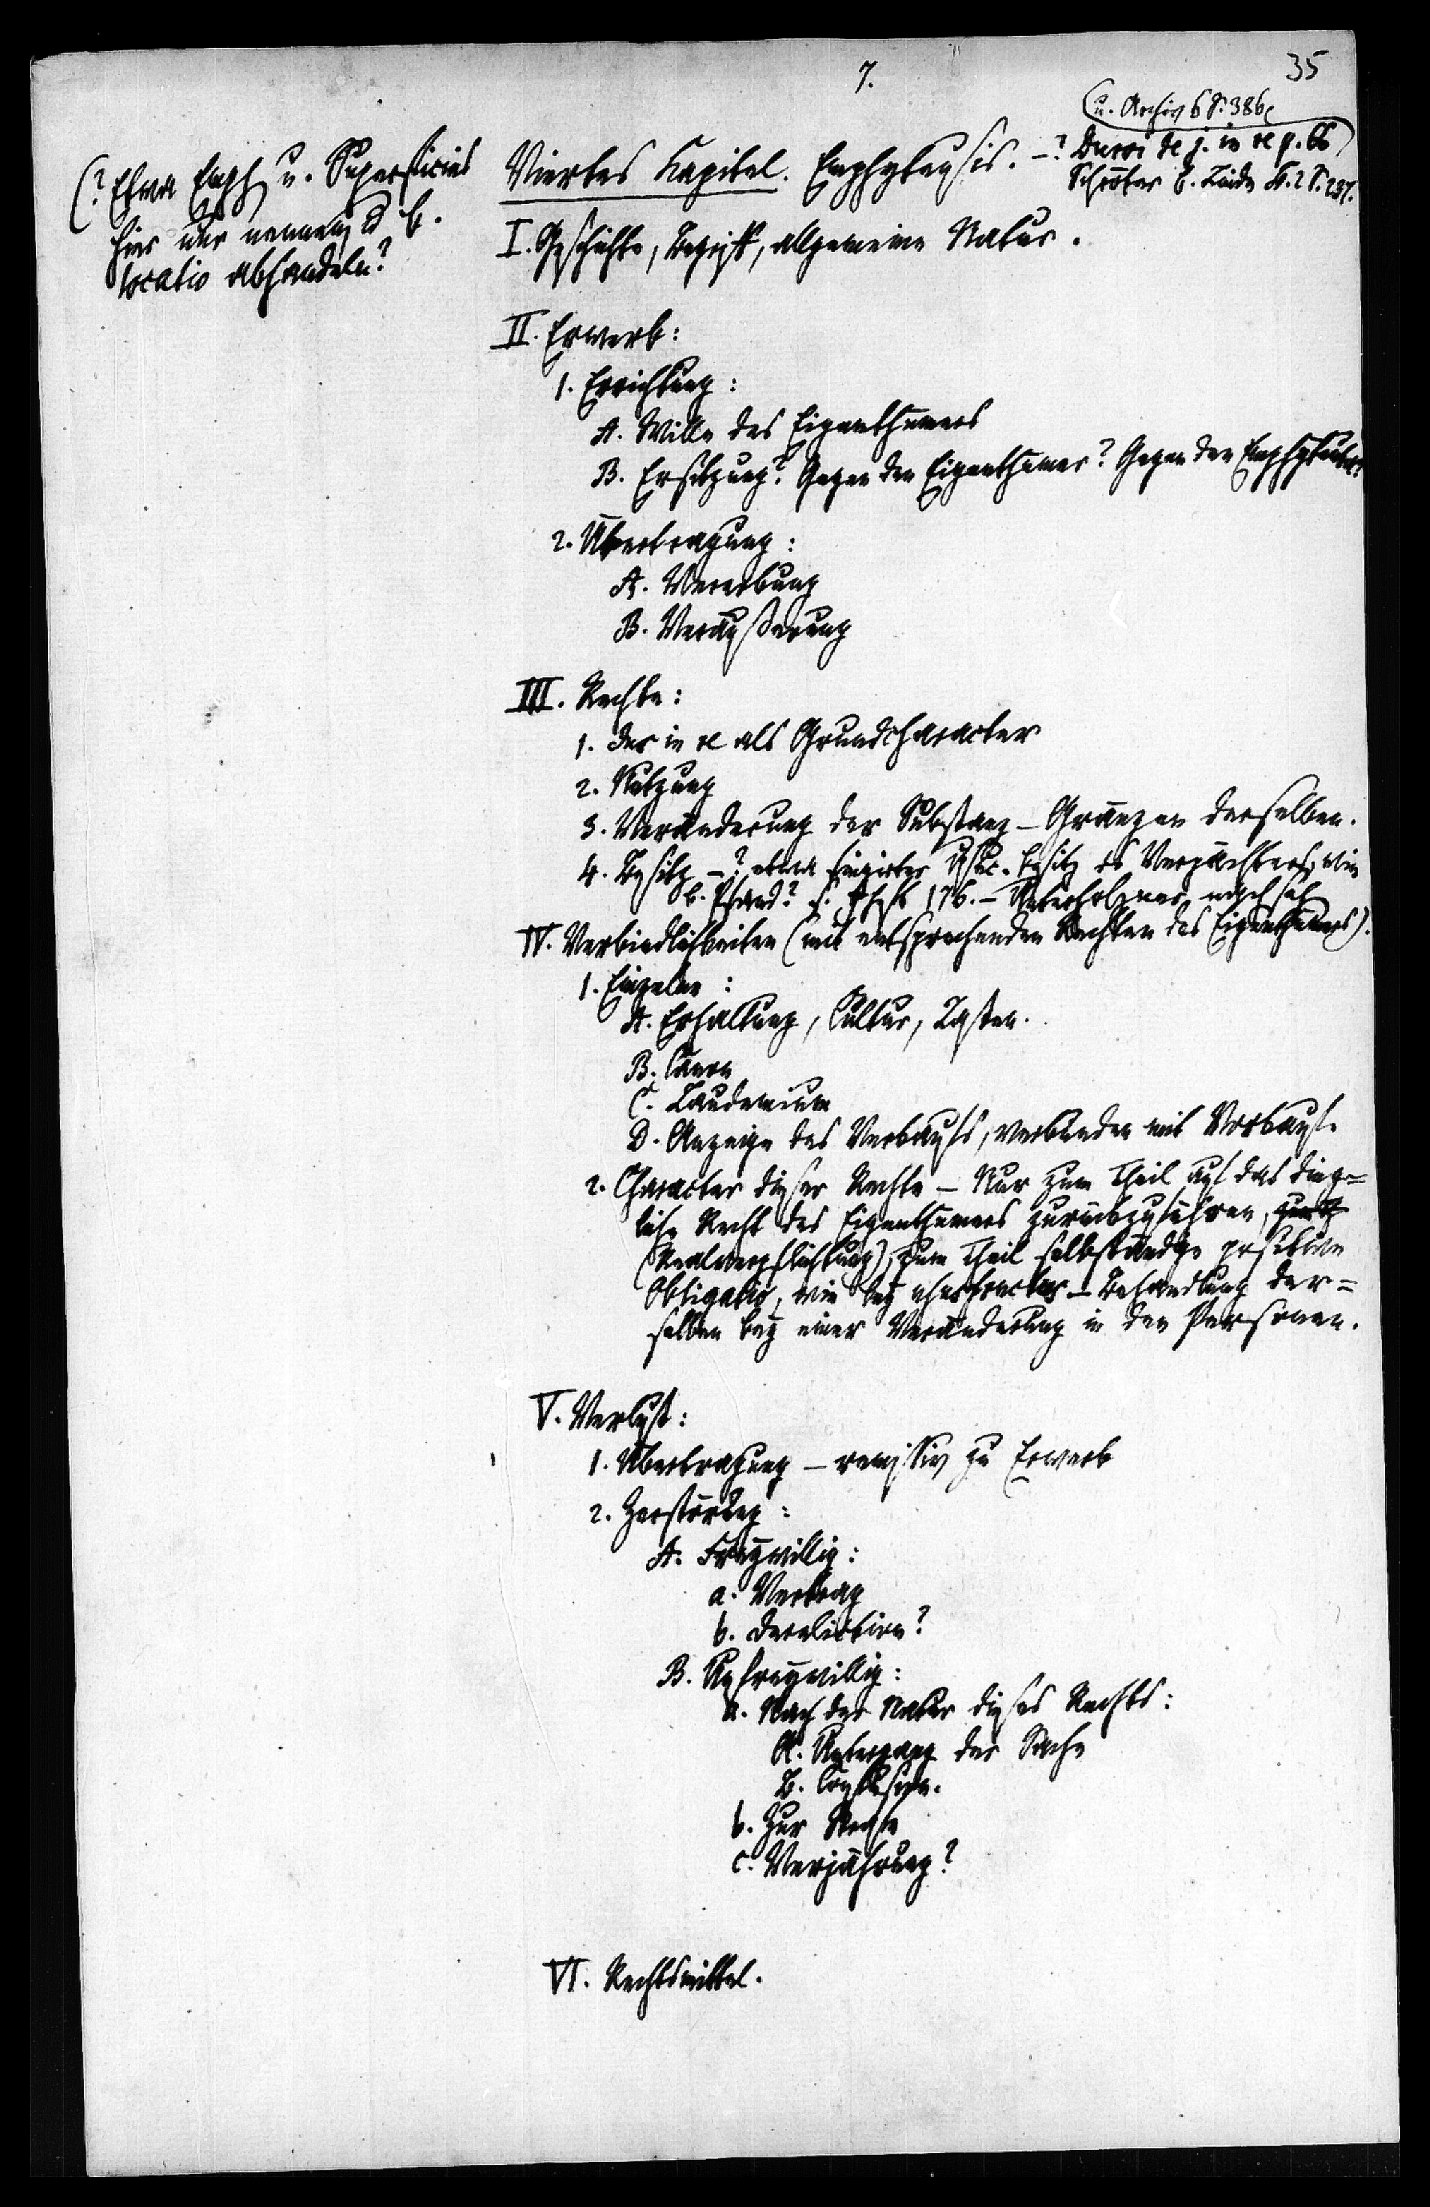 7.
35
u. Archiv 6 S. 386
Viertes Kapitel. Emphyteusis. –? Duroi de j. in re p. 66
Schröter b. Linde B. 2 S. 237.
(? Etwa Emph. u. Superficies
hier nur nennen, u. b.
locatio abhandeln?
I. Geschichte, Begriff, allgemeine Natur.
II. Erwerb:
1. Errichtung:
A. Wille des Eigenthümers
B. Ersitzung? Gegen den Eigenthümer? Gegen den Emphyteuta?
2. Übertragung:
A. Vererbung
B. Veräußerung
III. Rechte:
1. Jus in re als Grundcharacter
2. Nutzung
3. Veränderung der Substanz – Gränzen derselben.
4. Besitz –? etwa fingirter jur. Besitz des Verpächters, wie
b. Pfand? s. 176. – Unterholzner
IV. Verbindlichkeiten (mit entsprechenden Rechten des Eigenthümers).
1. Einzelne:
A. Erhaltung, Cultur, Lasten.
B. Canon
C. Laudemium
D. Anzeige des Verkaufs, verbunden mit Vorkauf.
2. Character dieser Rechte – Nur zum Theil auf das ding=
liche Recht des Eigenthümers zurückzuführen,
(Realverpflichtung), zum Theil selbständge positive
Obligatio, wie bey ususfructus – Behandlung der=
selben bey einer Veränderung in den Personen.
V. Verlust:
1. Übertragung – remissiv zu Erwerb
2. Zerstörung:
A. Freywillig:
a. Vertrag
b. Dereliction?
B. Unfreywillig:
a. Nach der Natur dieses Rechts:
A. Untergang der Sache
B. Confusion.
b. Zur Strafe
c. Verjährung?
VI. Rechtsmittel.